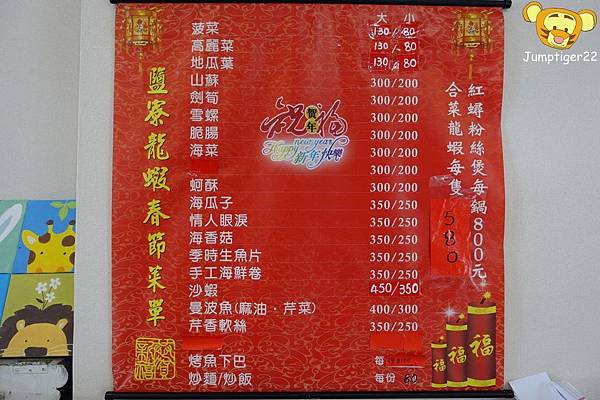 Jumptiger22
鹽寮龍蝦春節菜單
大 小
菠菜 130/80
高麗菜 130/80
地瓜葉 130/80
山蘇 300/200
劍筍 300/200
雪螺 300/200
脆腸 300/200
海菜 300/200
300/200
蚵酥 300/200
海瓜子 350/250
情人眼淚 350/250
海香菇 350/250
季時生魚片 350/250
手工海鮮卷 350/250
沙蝦 450/350
曼波魚(麻油．芹菜) 400/300
芹香軟絲 350/250
烤魚下巴 每
炒麵/炒飯 每份 60
祝福
賀年
new year
Happy 新年快樂
紅蟳粉絲煲每鍋800元
合菜龍蝦每隻
580
福
福
福